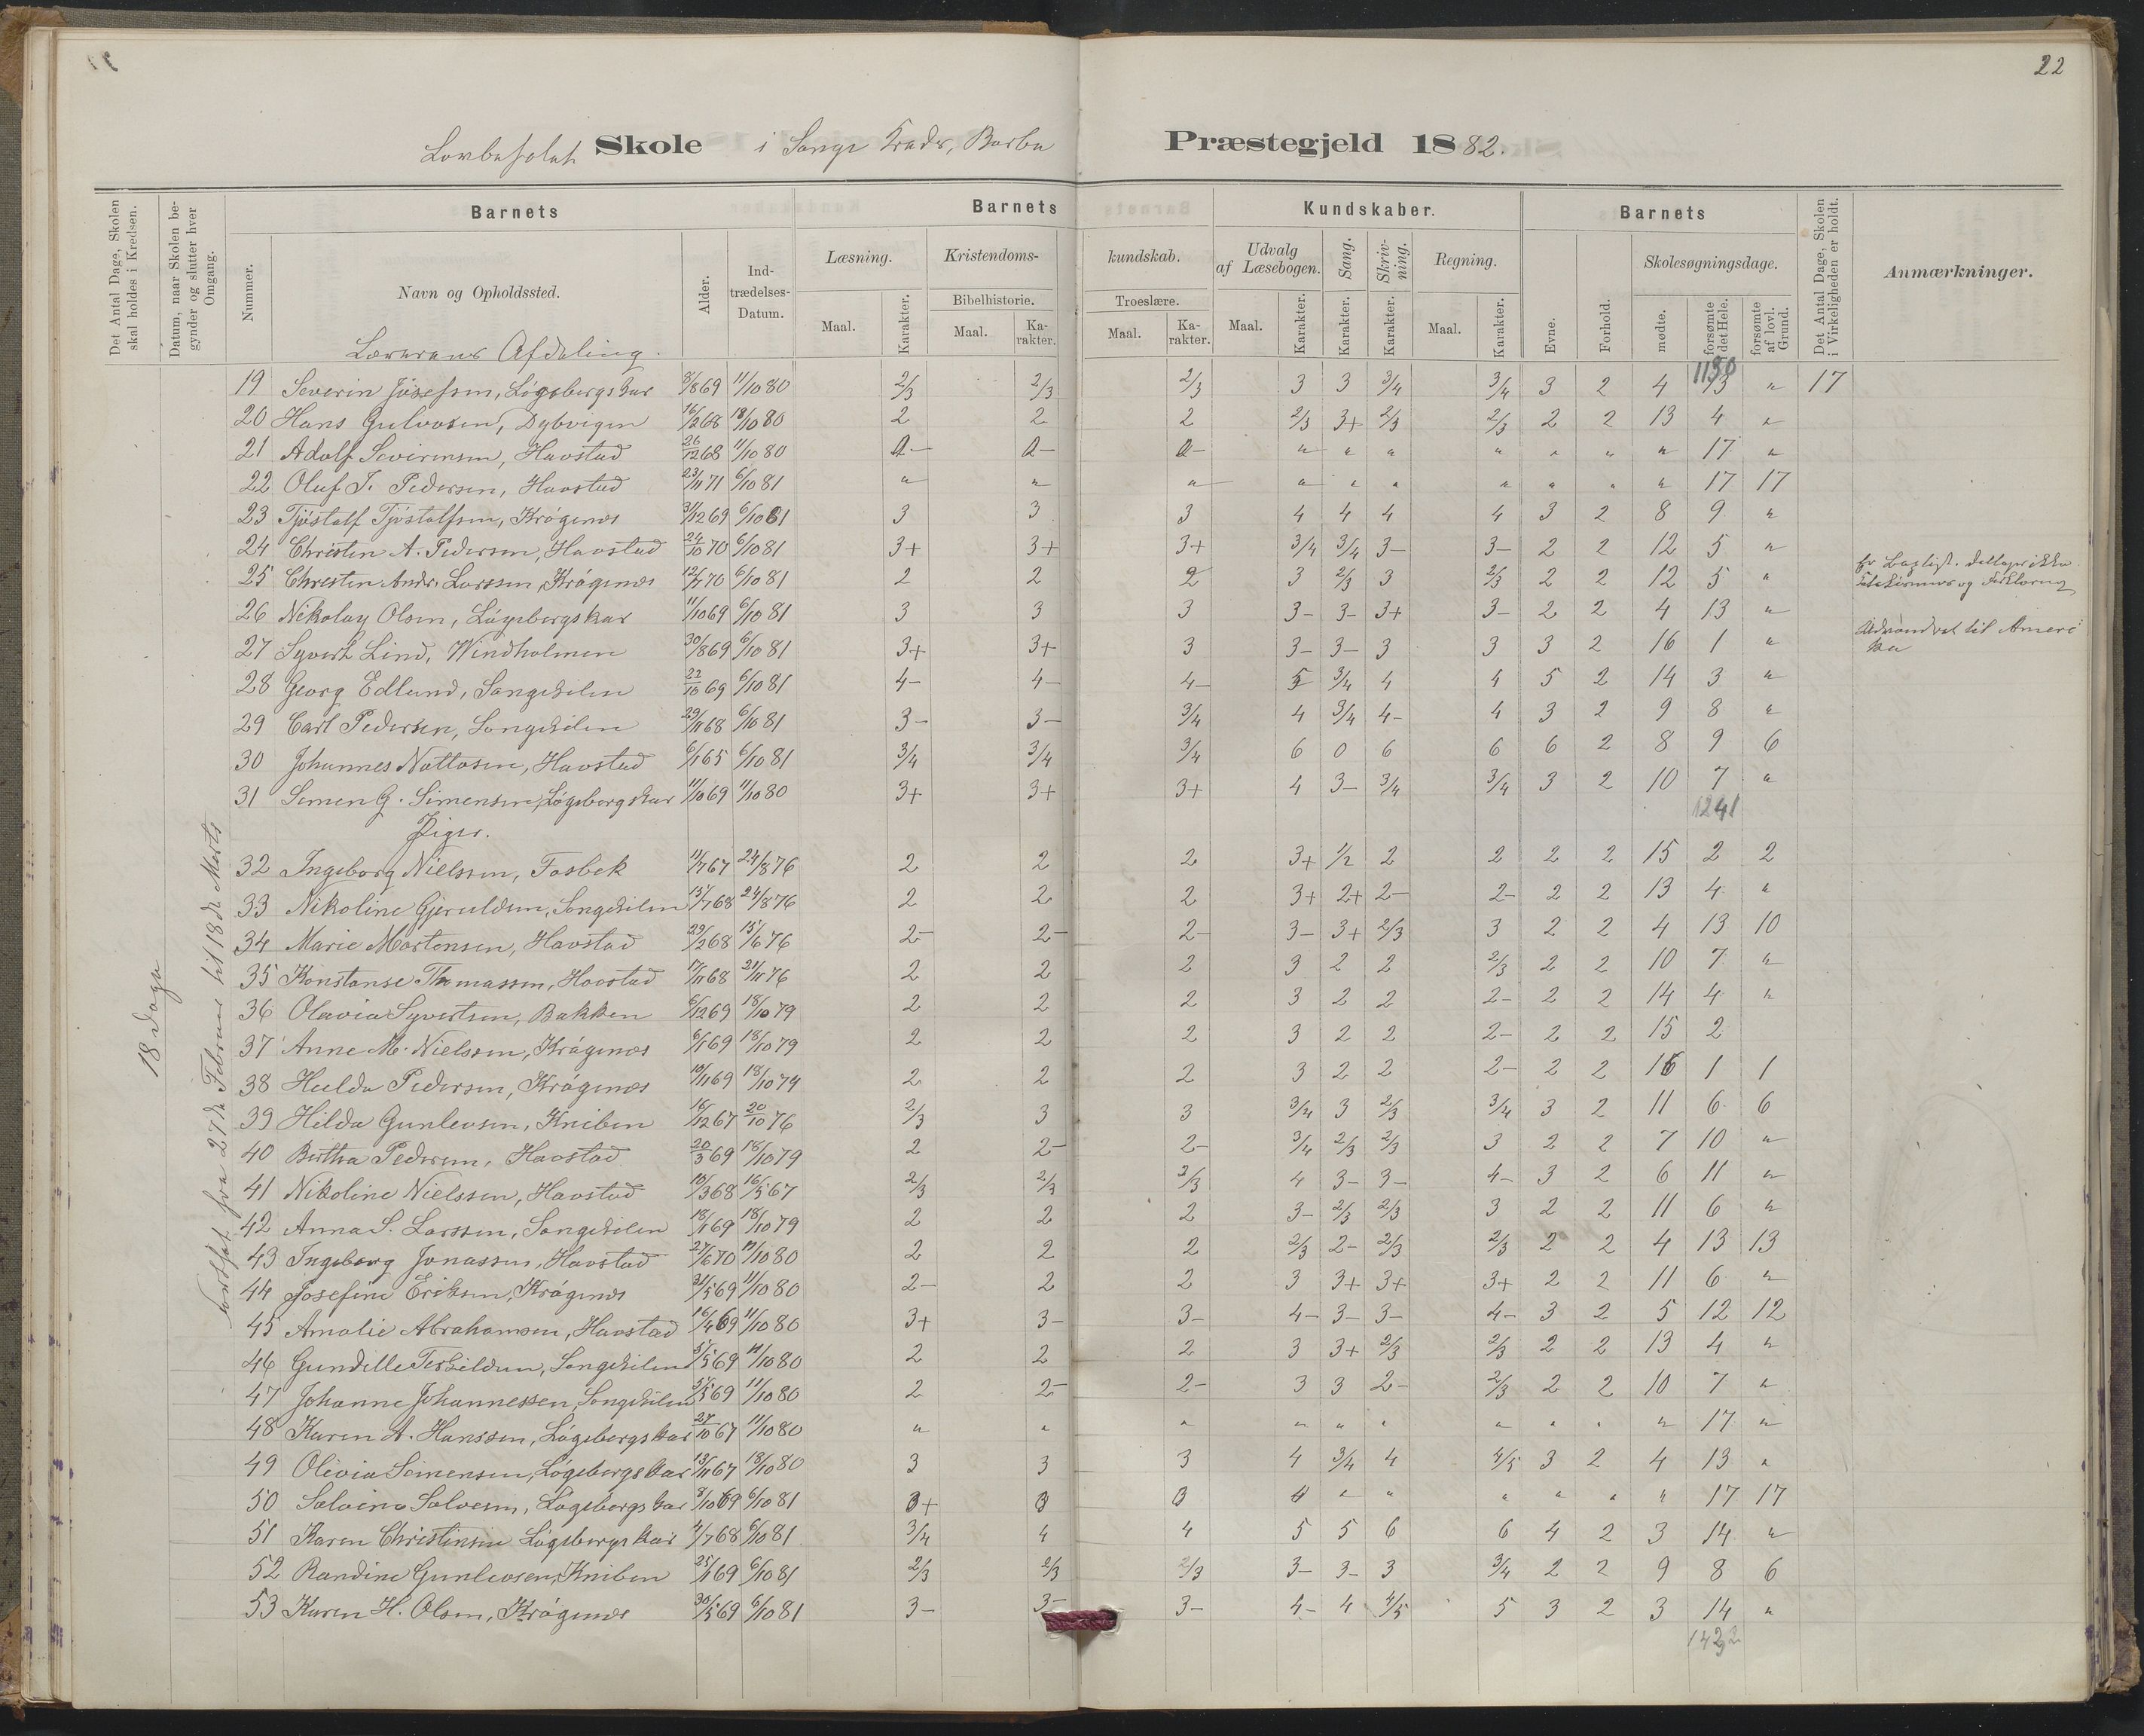 22
Skole i Songe Kreds, Barbu Præstegjeld 1882.
Det Antal Dage, Skolen skal holdes i Kredsen.
Datum, naar Skolen begynder og slutter hver Omgang.
Barnets Barnets Kundskaber. Barnets
Nummer. Navn og Opholdssted. Alder. Indtrædelses-Datum.
Læsning. Kristendoms- kundskab. Udvalg af Læsebogen. Sang. Skrivning. Regning.
Maal. Karakter. Bibelhistorie. Maal. Karakter. Troeslære. Maal. Karakter. Maal. Karakter. Karakter. Karakter. Maal. Karakter.
Evne. Forhold. Skolesøgningsdage. mødte. forsømte det Hele. forsømte af lovl. Grund.
Det Antal Dage, Skolen i Virkeligheden er holdt.
Anmærkninger.
Afdeling.
1130
19 Severin Josefsen, 8/8 69 11/10 80 2/3 2/3 2/3 3 3 3/4 3/4 3 2 4 13 " 17
20 Hans Gulvosen, Dybvigen 16/2 68 18/10 80 2 2 2 2/3 3+ 2/3 2/3 2 2 13 4 "
21 Adolf Severinsen, Havstad 26/12 68 11/10 80 " " " " " " 17 "
22 Oluf T. Pedersen, Havstad 23/11 71 6/10 81 " " " " " " " " " " 17 17
23 Tjøstolf Tjøstolfsen, Krøgenes 31/12 69 6/10 81 3 3 3 4 4 4 4 3 2 8 9 "
24 Christen A. Pedersen, Havstad 24/10 70 6/10 81 3+ 3+ 3+ 3/4 3/4 3- 3- 2 2 12 5 "
25 Christen Andr. Larssen, Krøgenes 12/7 70 6/10 81 2 2 2 3 2/3 3 2/3 2 2 12 5 "
26 Nikolay Olsen, 11/10 69 6/10 81 3 3 3 3- 3- 3+ 3- 2 2 4 13 "
27 Syvert Lind, Windholmen 30/8 69 6/10 81 3+ 3+ 3 3- 3- 3 3 3 2 16 1 " Udvandret til Amerika
28 Georg Edlund, Songekilen 22/10 69 6/10 81 4- 4- 4- 5 3/4 4 4 5 2 14 3 "
29 Carl Pedersen, Songekilen 29/11 68 6/10 81 3- 3- 3/4 4 3/4 4- 4 3 2 9 8 "
30 Johannes Nattosen, Havstad 6/1 65 6/10 81 3/4 3/4 3/4 6 0 6 6 6 2 8 9 6
31 Simen G. Simensen, 11/10 69 11/10 80 3+ 3+ 3+ 4 3- 3/4 3/4 3 2 10 7 "
1241
Piger.
32 Ingeborg Nielssen, Fosbek 11/7 67 24/8 76 2 2 2 3+ 1/2 2 2 2 2 15 2 2
33 Nikoline Gjeruldsen, Songekilen 15/7 68 24/8 76 2 2 2 3+ 2+ 2- 2- 2 2 13 4 "
34 Marie Mortensen, Havstad 29/2 68 15/6 76 2- 2- 2- 3- 3+ 2/3 3 2 2 4 13 10
35 Konstanse Thomassen, Havstad 17/11 68 21/11 76 2 2 2 3 2 2 2/3 2 2 10 7 "
36 Olavia Syvertsen, Bakken 6/12 69 18/10 79 2 2 2 3 2 2 2- 2 2 14 4 "
37 Anne M. Nielssen, Krøgenes 6/1 69 18/10 79 2 2 2 3 2 2 2- 2 2 15 2
38 Hulda Pedersen, Krøgenes 10/11 69 18/10 79 2 2 2 3 2 2 2- 2 2 16 1 1
39 Hilda Gunlevsen, Kniben 16/12 67 20/10 76 2/3 3 3 3/4 3 2/3 3/4 3 2 11 6 6
40 Bertha Pedersen, Havstad 20/3 69 18/10 79 2 2- 2- 3/4 2/3 2/3 3 2 2 7 10 "
41 Nikoline Nielssen, Havstad 10/3 68 16/5 67 2/3 2/3 2/3 4 3- 3- 4- 3 2 6 11 "
42 Anna S. Larssen, Songekilen 18/1 69 18/10 79 2 2 2 3- 2/3 2/3 3 2 2 11 6 "
43 Ingeborg Jonassen, Havstad 27/6 70 11/10 80 2 2 2 2/3 2- 2/3 2/3 2 2 4 13 13
44 Josefine Eriksen, Krøgenes 31/5 69 11/10 80 2- 2 2 3 3+ 3+ 3+ 2 2 11 6 "
45 Amalie Abrahamsen, Havstad 16/4 69 11/10 80 3+ 3- 3- 4- 3- 3- 4- 3 2 5 12 12
46 Gundelle Terkildsen, Songekilen 5/5 69 11/10 80 2 2 2 3 3+ 2/3 2/3 2 2 13 4 "
47 Johanne Johannessen, Songekilen 5/5 69 11/10 80 2 2- 2- 3 3 2- 2/3 2 2 10 7 "
48 Karen A. Hanssen, 27/10 67 11/10 80 " " " " " " " " " " 17 "
49 Olivia Simensen, 13/11 67 18/10 80 3 3 3 4 3/4 4 4/5 3 2 4 13 "
50 Salvine Salvesen, 8/10 69 6/10 81 3+ 3 3 4 " " " " " " 17 17
51 Karen Christensen 4/7 68 6/10 81 3/4 4 4 5 5 6 6 4 2 3 14 "
52 Randine Gunlevsen, Kniben 25/1 69 6/10 81 2/3 2/3 2/3 3- 3- 3 3/4 2 2 9 8 6
53 Karen H. Olsen, Krøgenes 30/5 69 6/10 81 3- 3- 3- 4- 4 4/5 5 3 2 3 14 "
18 dage
fra 27de Februar til 18de Marts